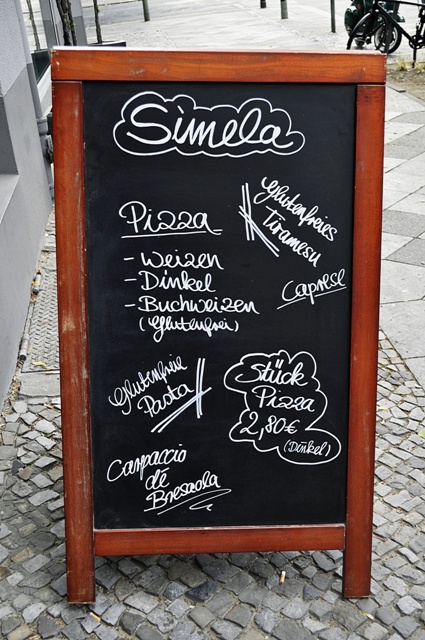 Simela
Pizza
- Weizen
- Dinkel
- Buchweizen
(Glutenfrei)
Glutenfreies
Tiramesu
Caprese
Glutenfreie
Pasta
Stück
Pizza
2,80€
(Dinkel)
Carpaccio
de
Bresaola